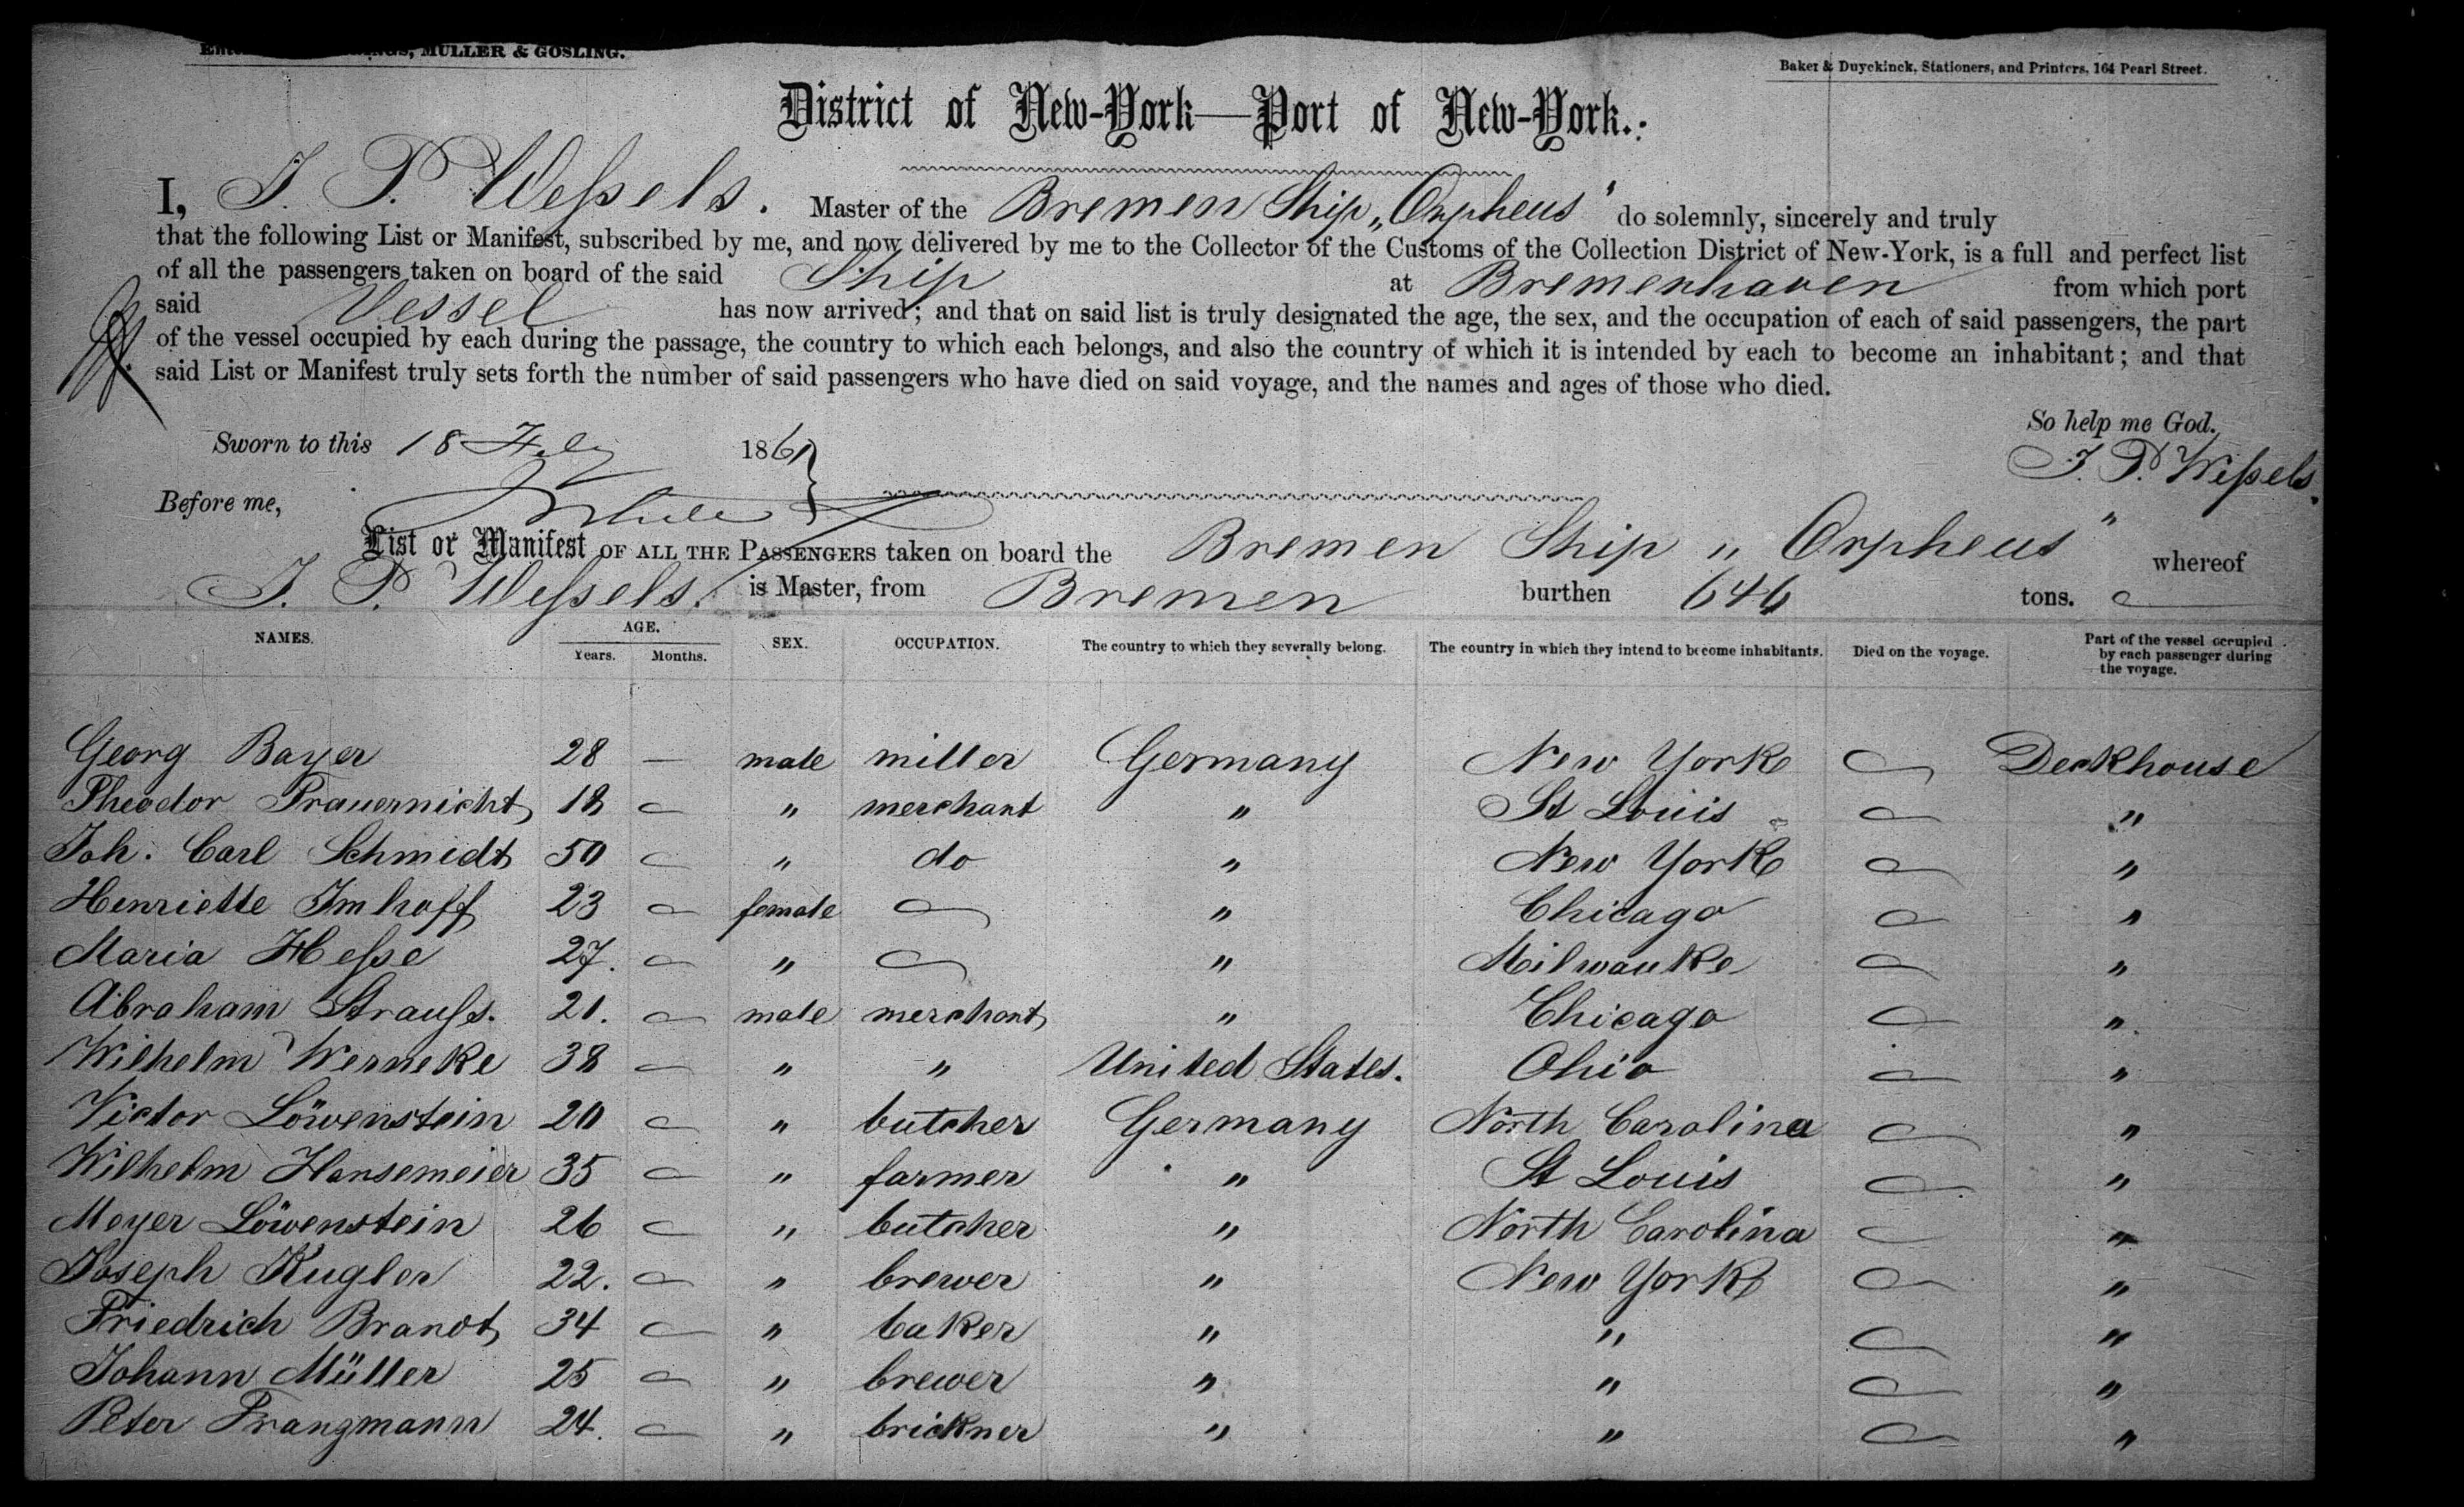 MULLER & GOSLING.
Baker & Duyckinck, Stationers, and Printers, 164 Pearl Street.
District of New-York—Port of New-York.
I, J. P. Weſsels. Master of the Bremen Ship „Orpheus" do solemnly, sincerely and truly
that the following List or Manifest, subscribed by me, and now delivered by me to the Collector of the Customs of the Collection District of New-York, is a full and perfect list
of all the passengers taken on board of the said Ship at Bremenhaven from which port
said Vessel has now arrived; and that on said list is truly designated the age, the sex, and the occupation of each of said passengers, the part
of the vessel occupied by each during the passage, the country to which each belongs, and also the country of which it is intended by each to become an inhabitant; and that
said List or Manifest truly sets forth the number of said passengers who have died on said voyage, and the names and ages of those who died.
So help me God.
Sworn to this 18 July 1861
J. P. Weſsels.
Before me,
List or Manifest OF ALL THE PASSENGERS taken on board the Bremen Ship „Orpheus" whereof
J. P. Weſsels. is Master, from Bremen burthen 646 tons.
NAMES. AGE. Years. Months. SEX. OCCUPATION. The country to which they severally belong. The country in which they intend to become inhabitants. Died on the voyage. Part of the vessel occupied by each passenger during the voyage.
Georg Bayer 28 — male miller Germany New York — Deckhouse
Theodor Frauernicht 18 — " merchant " St Louis — "
Joh. Carl Schmidt 50 — " do " New York — "
Henriette Imhoff 23 — female — " Chicago — "
Maria Heſse 27. — " — " Milwauke — "
Abraham Strauſs. 21. — male merchant " Chicago — "
Wilhelm Werneke 38 — " " United States. Ohio — "
Victor Löwenstein 20 — " butcher Germany North Carolina — "
Wilhelm Hansemeier 35 — " farmer " St Louis — "
Meyer Löwenstein 26 — " butcher " North Carolina — "
Joseph Kugler 22. — " brewer " New York — "
Friedrich Brandt 34 — " baker " " — "
Johann Müller 25 — " brewer " " — "
Peter Frangmann 24. — " brickner " " — "